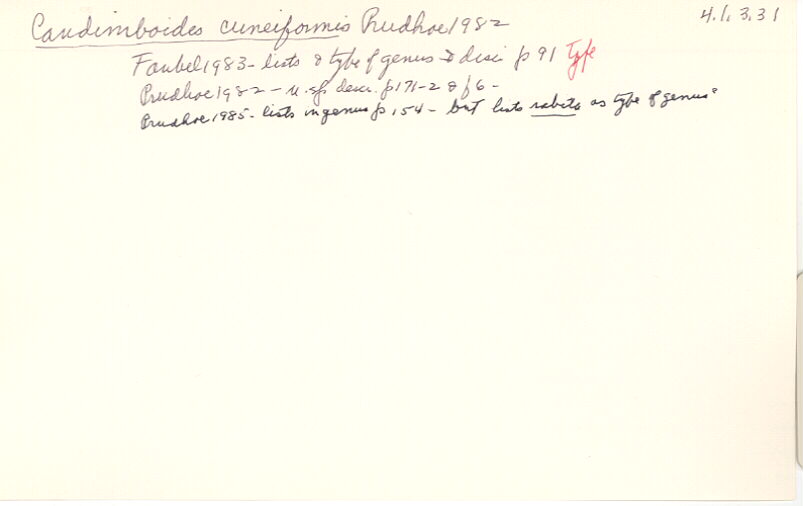 4.1.3.31
Candimboides cuneiformis Prudhoe 1982
Faubel 1983 - lists & type of genus & disc p 91 Type
Prudhoe 1982 - n. sp. descr. p 171-2 & f 6 -
Prudhoe 1985 - lists in genus p 154 - but lists rabita as type of genus